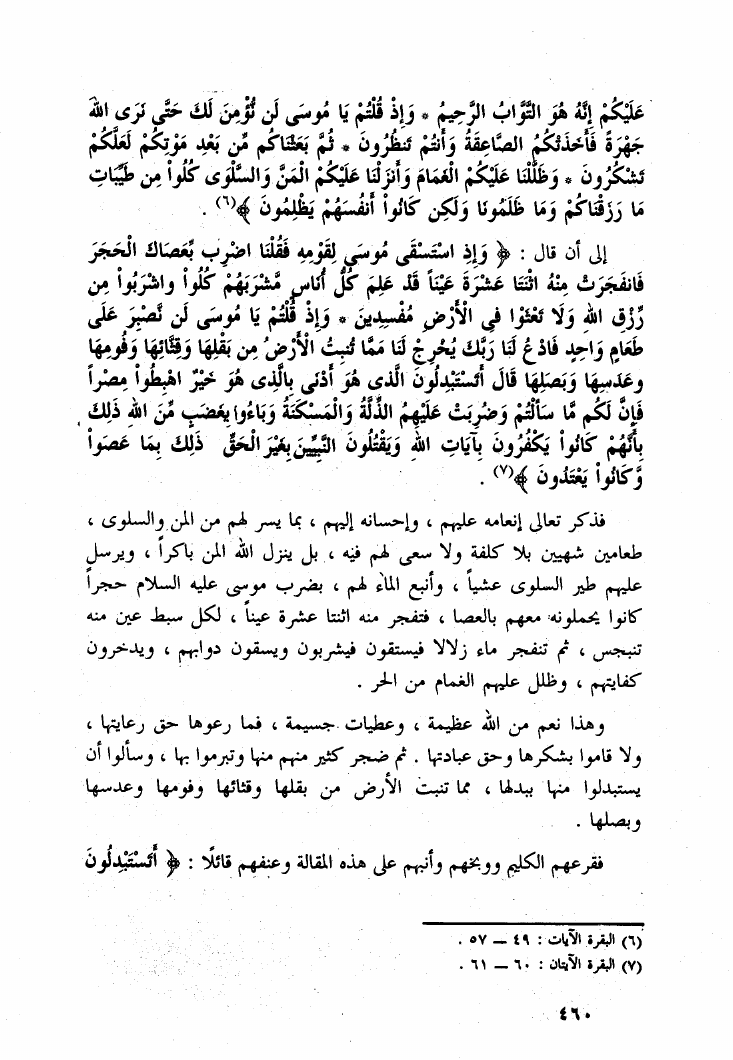 عَلَيْكُمْ إِنَّهُ هُوَ التَّوَّابُ الرَّحِيمُ * وَإِذْ قُلْتُمْ يَا مُوسَى لَن نُّؤْمِنَ لَكَ حَتَّى نَرَى اللهَ
جَهْرَةً فَأَخَذَتْكُمُ الصَّاعِقَةُ وَأَنتُمْ تَنظُرُونَ * ثُمَّ بَعَثْنَاكُم مِّن بَعْدِ مَوْتِكُمْ لَعَلَّكُمْ
تَشْكُرُونَ * وَظَلَّلْنَا عَلَيْكُمُ الْغَمَامَ وَأَنزَلْنَا عَلَيْكُمُ الْمَنَّ وَالسَّلْوَى كُلُواْ مِن طَيِّبَاتِ
مَا رَزَقْنَاكُمْ وَمَا ظَلَمُونَا وَلَكِن كَانُواْ أَنفُسَهُمْ يَظْلِمُونَ ﴾(٦) .
إلى أن قال : ﴿ وَإِذِ اسْتَسْقَى مُوسَى لِقَوْمِهِ فَقُلْنَا اضْرِب بِّعَصَاكَ الْحَجَرَ
فَانفَجَرَتْ مِنْهُ اثْنَتَا عَشْرَةَ عَيْناً قَدْ عَلِمَ كُلُّ أُنَاسٍ مَّشْرَبَهُمْ كُلُواْ واشْرَبُواْ مِن
رِّزْقِ اللهِ وَلَا تَعْثَوْا فِى الْأَرْضِ مُفْسِدِينَ * وَإِذْ قُلْتُمْ يَا مُوسَى لَن نَّصْبِرَ عَلَى
طَعَامٍ وَاحِدٍ فَادْعُ لَنَا رَبَّكَ يُخْرِجْ لَنَا مَمَّا تُنبِتُ الْأَرْضُ مِن بَقْلِهَا وَقِثَّائِهَا وَفُومِهَا
وعَدَسِهَا وَبَصَلِهَا قَالَ أَتَسْتَبْدِلُونَ الَّذِى هُوَ أَدْنَى بِالَّذِى هُوَ خَيْرٌ اهْبِطُواْ مِصْراً
فَإِنَّ لَكُم مَّا سَأَلْتُمْ وَضُرِبَتْ عَلَيْهِمُ الذِّلَّةُ وَالْمَسْكَنَةُ وَبَاءُوا بِغَضَبٍ مِّنَ اللهِ ذَلِكَ
بِأَنَّهُمْ كَانُواْ يَكْفُرُونَ بِآيَاتِ اللهِ وَيَقْتُلُونَ النَّبِيِّينَ بِغَيْرِ الْحَقِّ ذَلِكَ بِمَا عَصَواْ
وَّكَانُواْ يَعْتَدُونَ ﴾(٧) .
فذكر تعالى إنعامه عليهم ، وإحسانه إليهم ، بما يسر لهم من المن والسلوى ،
طعامين شهيين بلا كلفة ولا سعى لهم فيه ، بل ينزل الله المن باكراً ، ويرسل
عليهم طير السلوى عشياً ، وأنبع الماء لهم ، بضرب موسى عليه السلام حجراً
كانوا يحملونه معهم بالعصا ، فتفجر منه اثنتا عشرة عيناً ، لكل سبط عين منه
تنبجس ، ثم تنفجر ماء زلالا فيستقون فيشربون ويسقون دوابهم ، ويدخرون
كفايتهم ، وظلل عليهم الغمام من الحر .
وهذا نعم من الله عظيمة ، وعطيات جسيمة ، فما رعوها حق رعايتها ،
ولا قاموا بشكرها وحق عبادتها . ثم ضجر كثير منهم منها وتبرموا بها ، وسألوا أن
يستبدلوا منها ببدلها ، مما تنبت الأرض من بقلها وقثائها وفومها وعدسها
وبصلها .
فقرعهم الكليم ووبخهم وأنبهم على هذه المقالة وعنفهم قائلًا : ﴿ أَتَسْتَبْدِلُونَ
(٦) البقرة الآيات : ٤٩ — ٥٧ .
(٧) البقرة الآيتان : ٦٠ — ٦١ .
٤٦٠